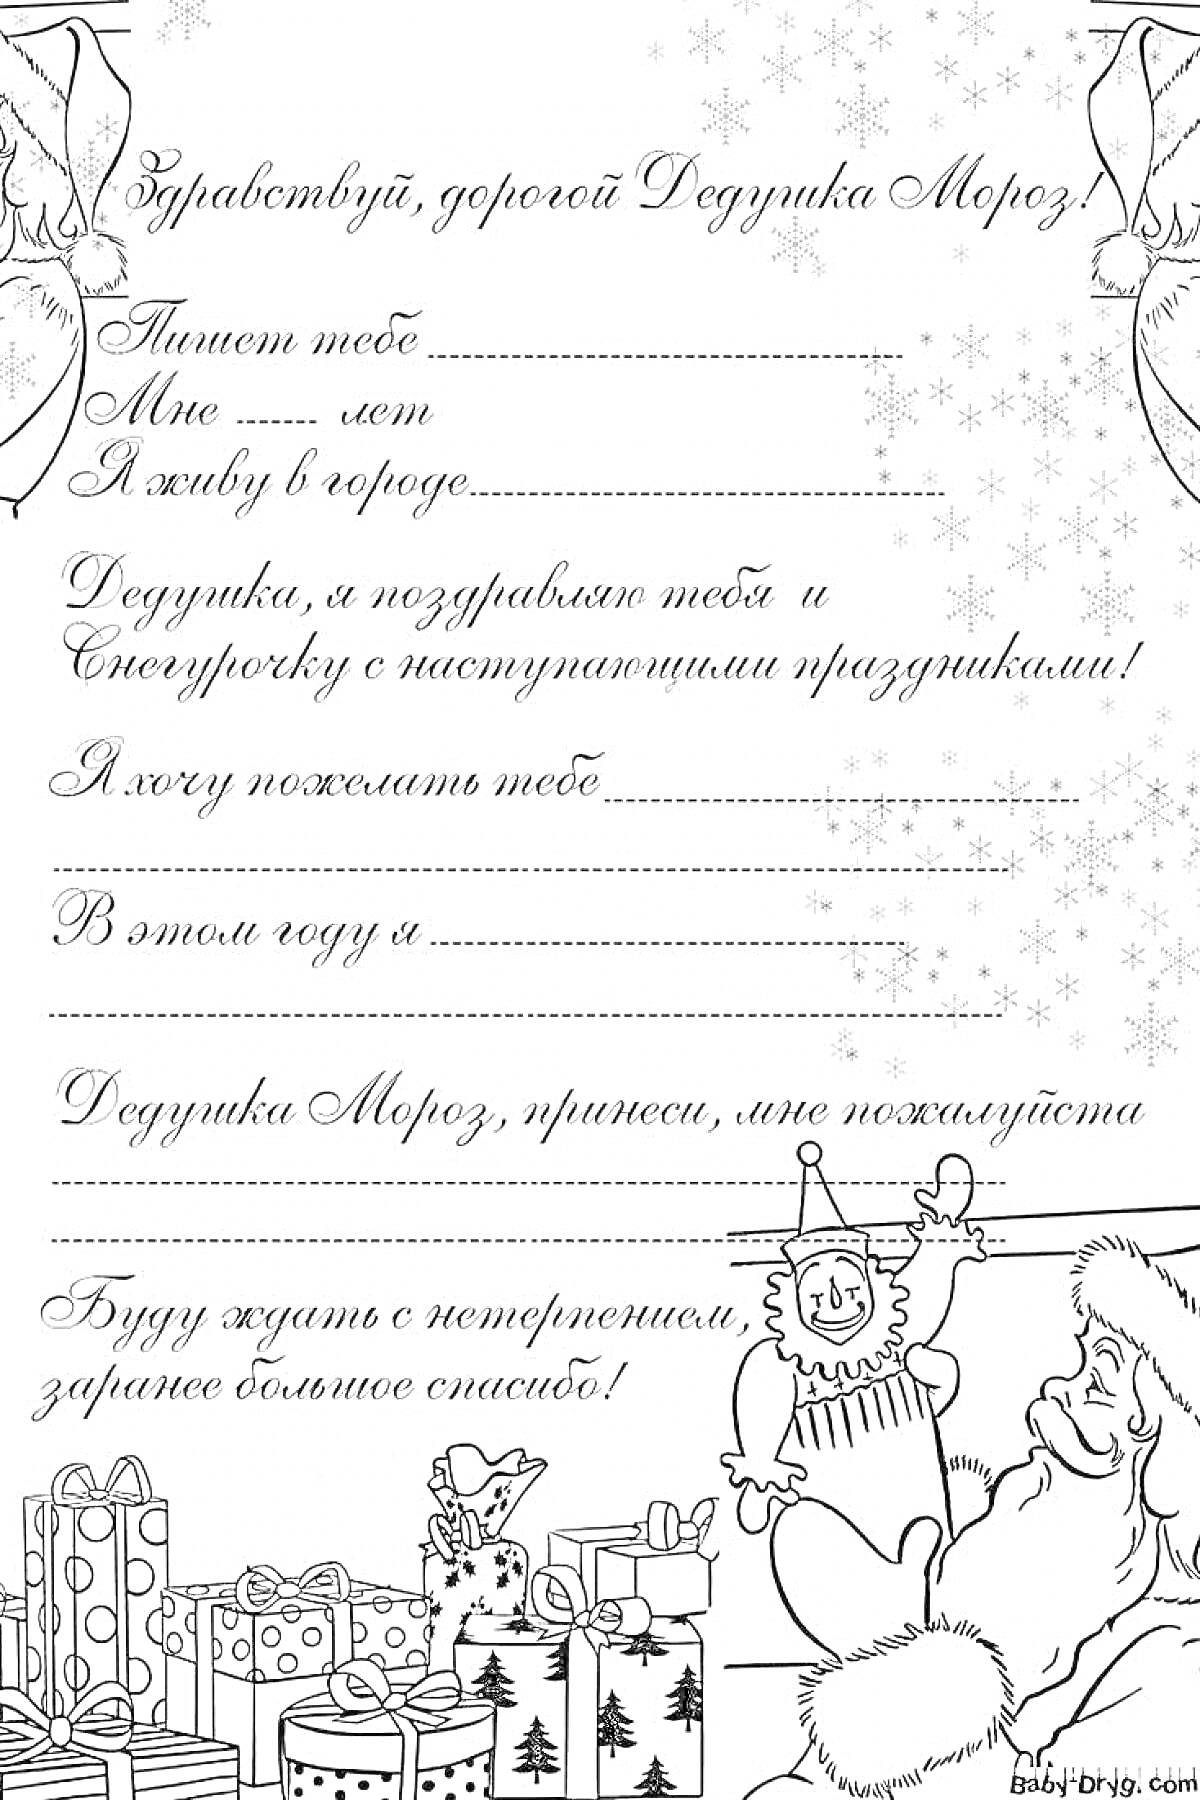 Здравствуй, дорогой Дедушка Мороз!
Пишет тебе
Мне лет
Я живу в городе
Дедушка, я поздравляю тебя и
Снегурочку с наступающими праздниками!
Я хочу пожелать тебе
В этом году я
Дедушка Мороз, принеси, мне пожалуйста
Буду ждать с нетерпением,
заранее большое спасибо!
Baby-Dryg.com